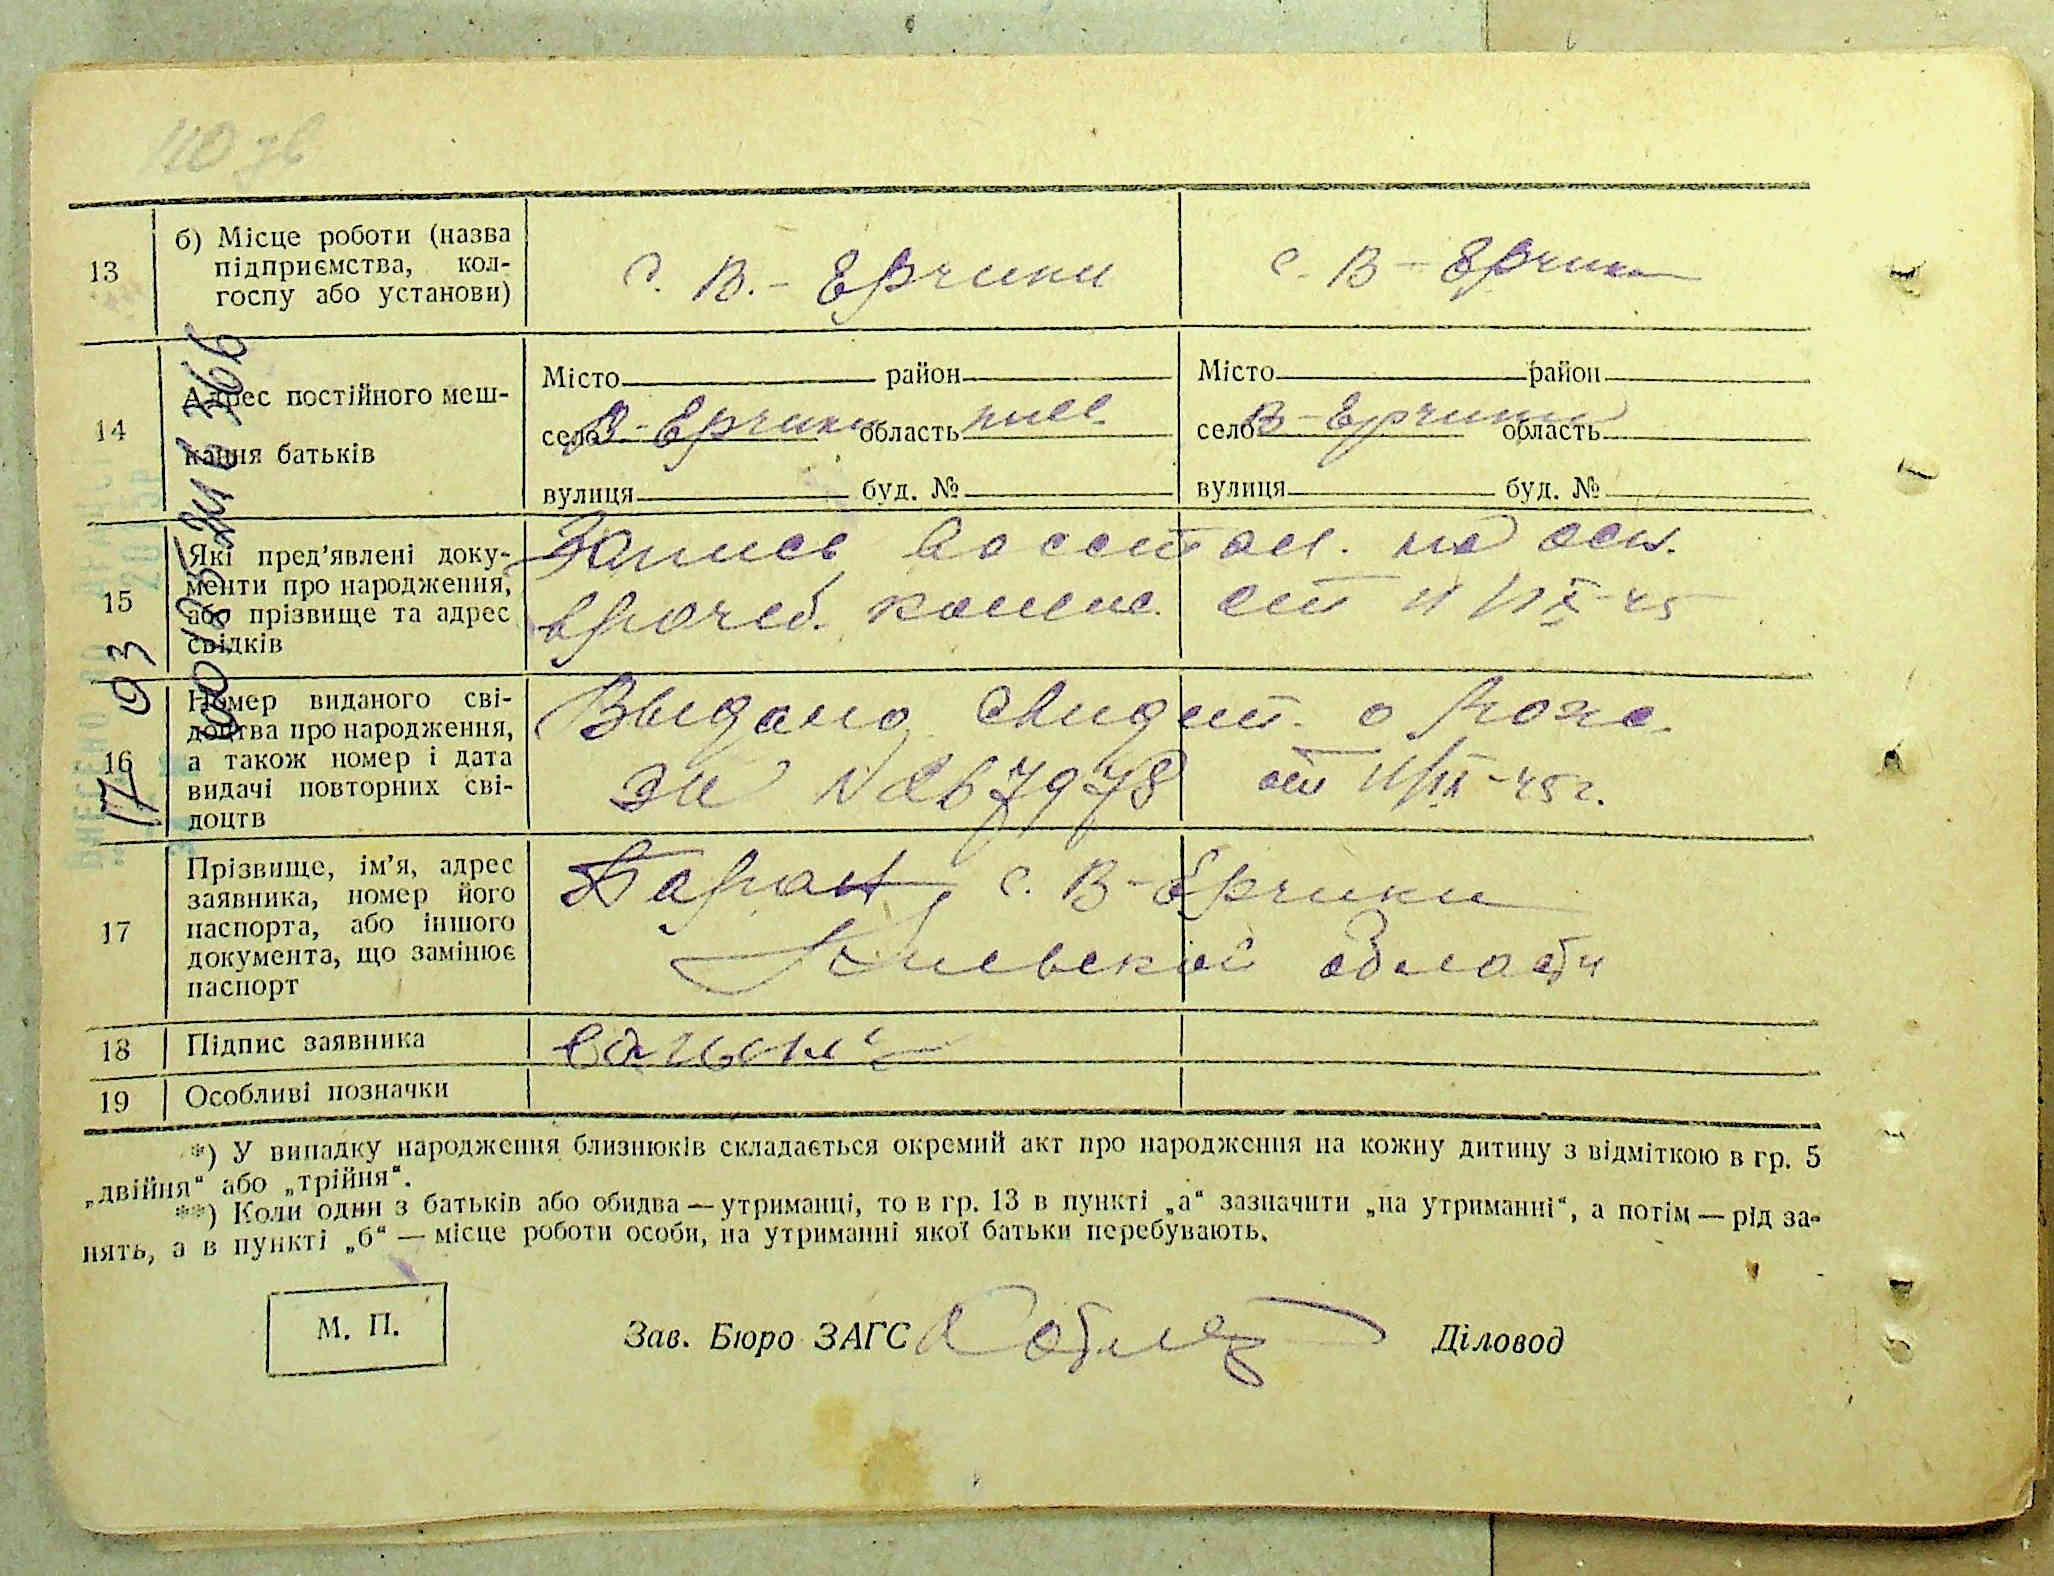 110 зв
13
б) Місце роботи (назва
підприємства, кол-
госпу або установи)
с. В.- Ерчики
с. В - Ерчики
14
Адрес постійного меш-
кання батьків
Місто район
село В-Ерчики область киев.
вулиця буд. №
Місто район
село В-Ерчики область
вулиця буд. №
15
Які пред'явлені доку-
менти про народження,
або прізвище та адрес
свідків
Запись восстан. на осн.
врачеб. комис. от 11/IX-45
16
Номер виданого сві-
доцтва про народження,
а також номер і дата
видачі повторних сві-
доцтв
Выдано свидет. о рожд.
ЭИ № 267978 от 11/IX-45г.
17
Прізвище, ім'я, адрес
заявника, номер його
паспорта, або іншого
документа, що замінює
паспорт
Баран с. В-Ерчики
Киевской области
18
Підпис заявника
19
Особливі позначки
17 93
*) У випадку народження близнюків складається окремий акт про народження на кожну дитину з відміткою в гр. 5
„двійня“ або „трійня“.
**) Коли один з батьків або обидва — утриманці, то в гр. 13 в пункті „а“ зазначити „на утриманні“, а потім — рід за-
нять, а в пункті „б“ — місце роботи особи, на утриманні якої батьки перебувають.
М. П.
Зав. Бюро ЗАГС
Діловод